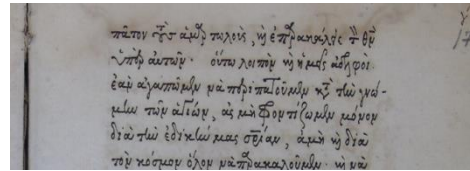 πᾶτον τοὺς ἁμαρτωλοὺς, κὴ ἐπαρακάλεσε τὸν θεὸν
ὑπὲρ αὐτῶν. οὕτω λοιπὸν κὴ ἡμεῖς ἀδελφοὶ
ἐὰν ἀγαπῶμεν νὰ περιπατοῦμεν κατὰ τὴν γνώ-
μην τῶν ἁγίων, ἂς μὴ φροντίζωμεν μόνον
διὰ τὴν ἐδικήν μας σωτηρίαν, ἀμὴ κὴ διὰ
τὸν κόσμον ὅλον νὰ παρακαλοῦμεν. κὴ νὰ